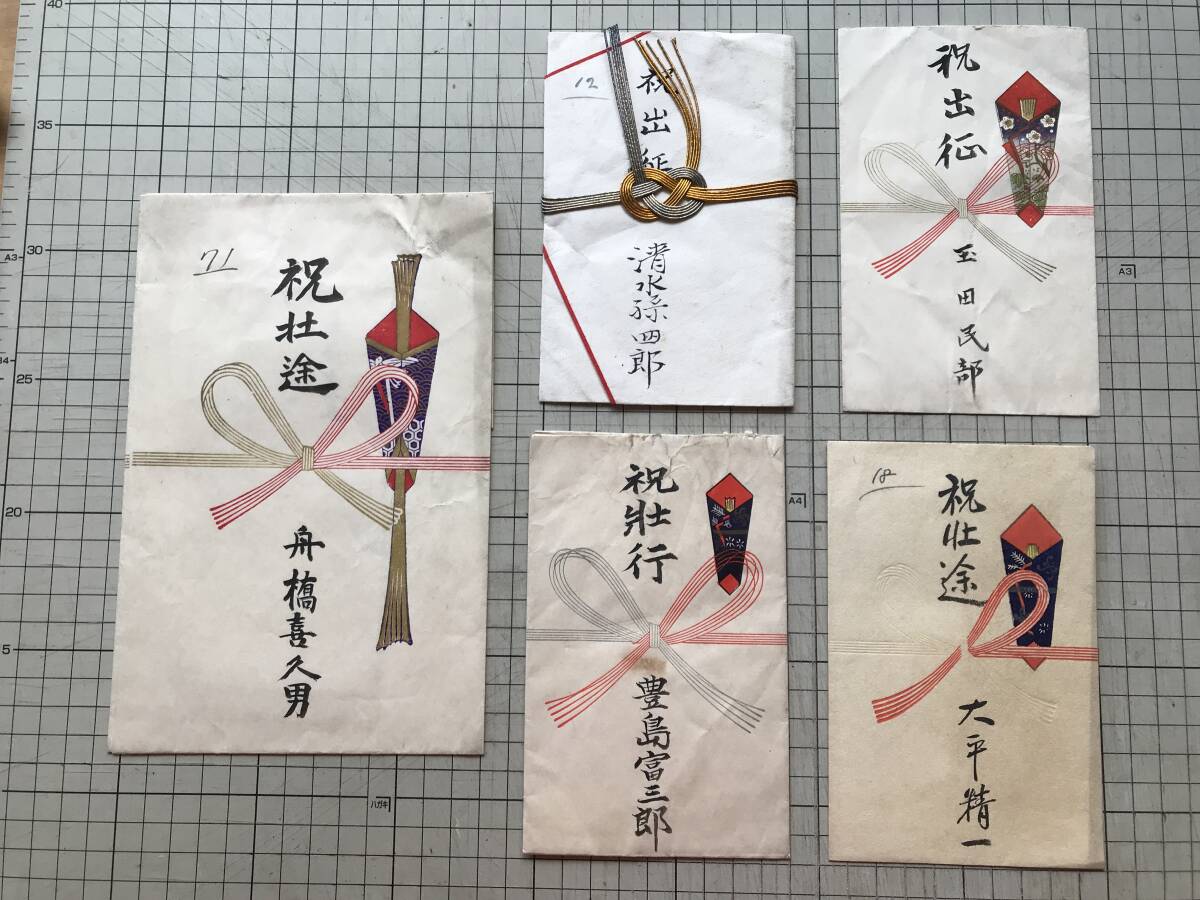 71
祝壮途
舟橋喜久男
12
祝出征
清水孫四郎
祝出征
玉田民部
祝壯行
豊島富三郎
18
祝壮途
大平精一
40
35
A3
30
34
25
20
5
A3
A4
ハガキ